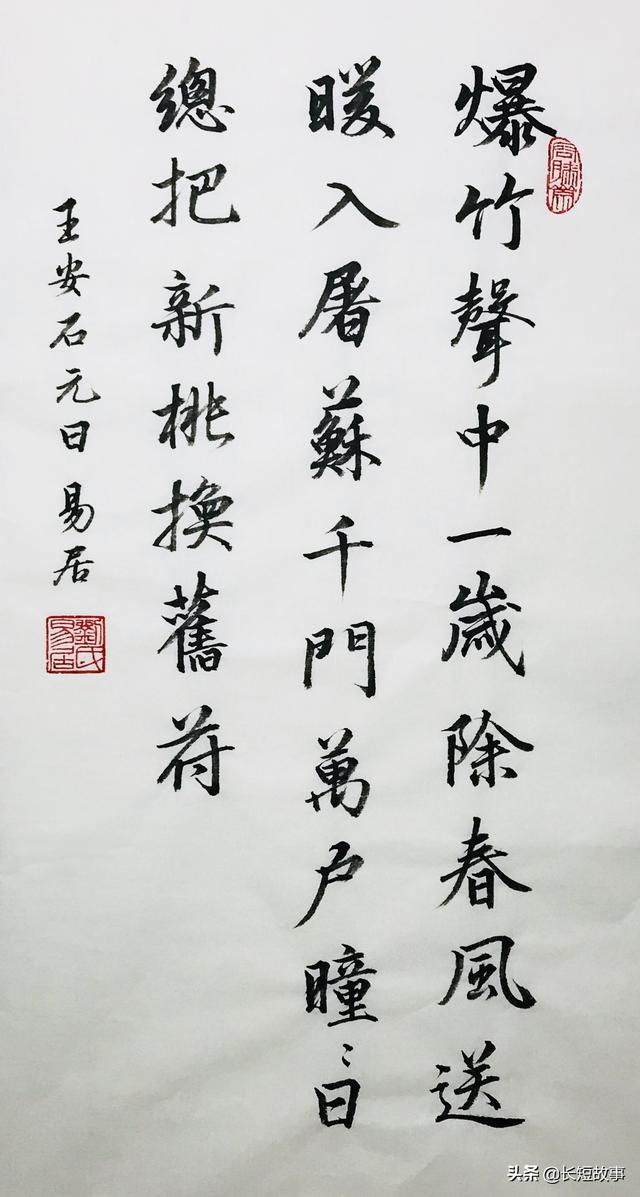 爆竹聲中一歲除春風送
暖入屠蘇千門萬户曈〻日
總把新桃換舊苻
王安石元日 易居
劉氏易居
头条 @长短故事